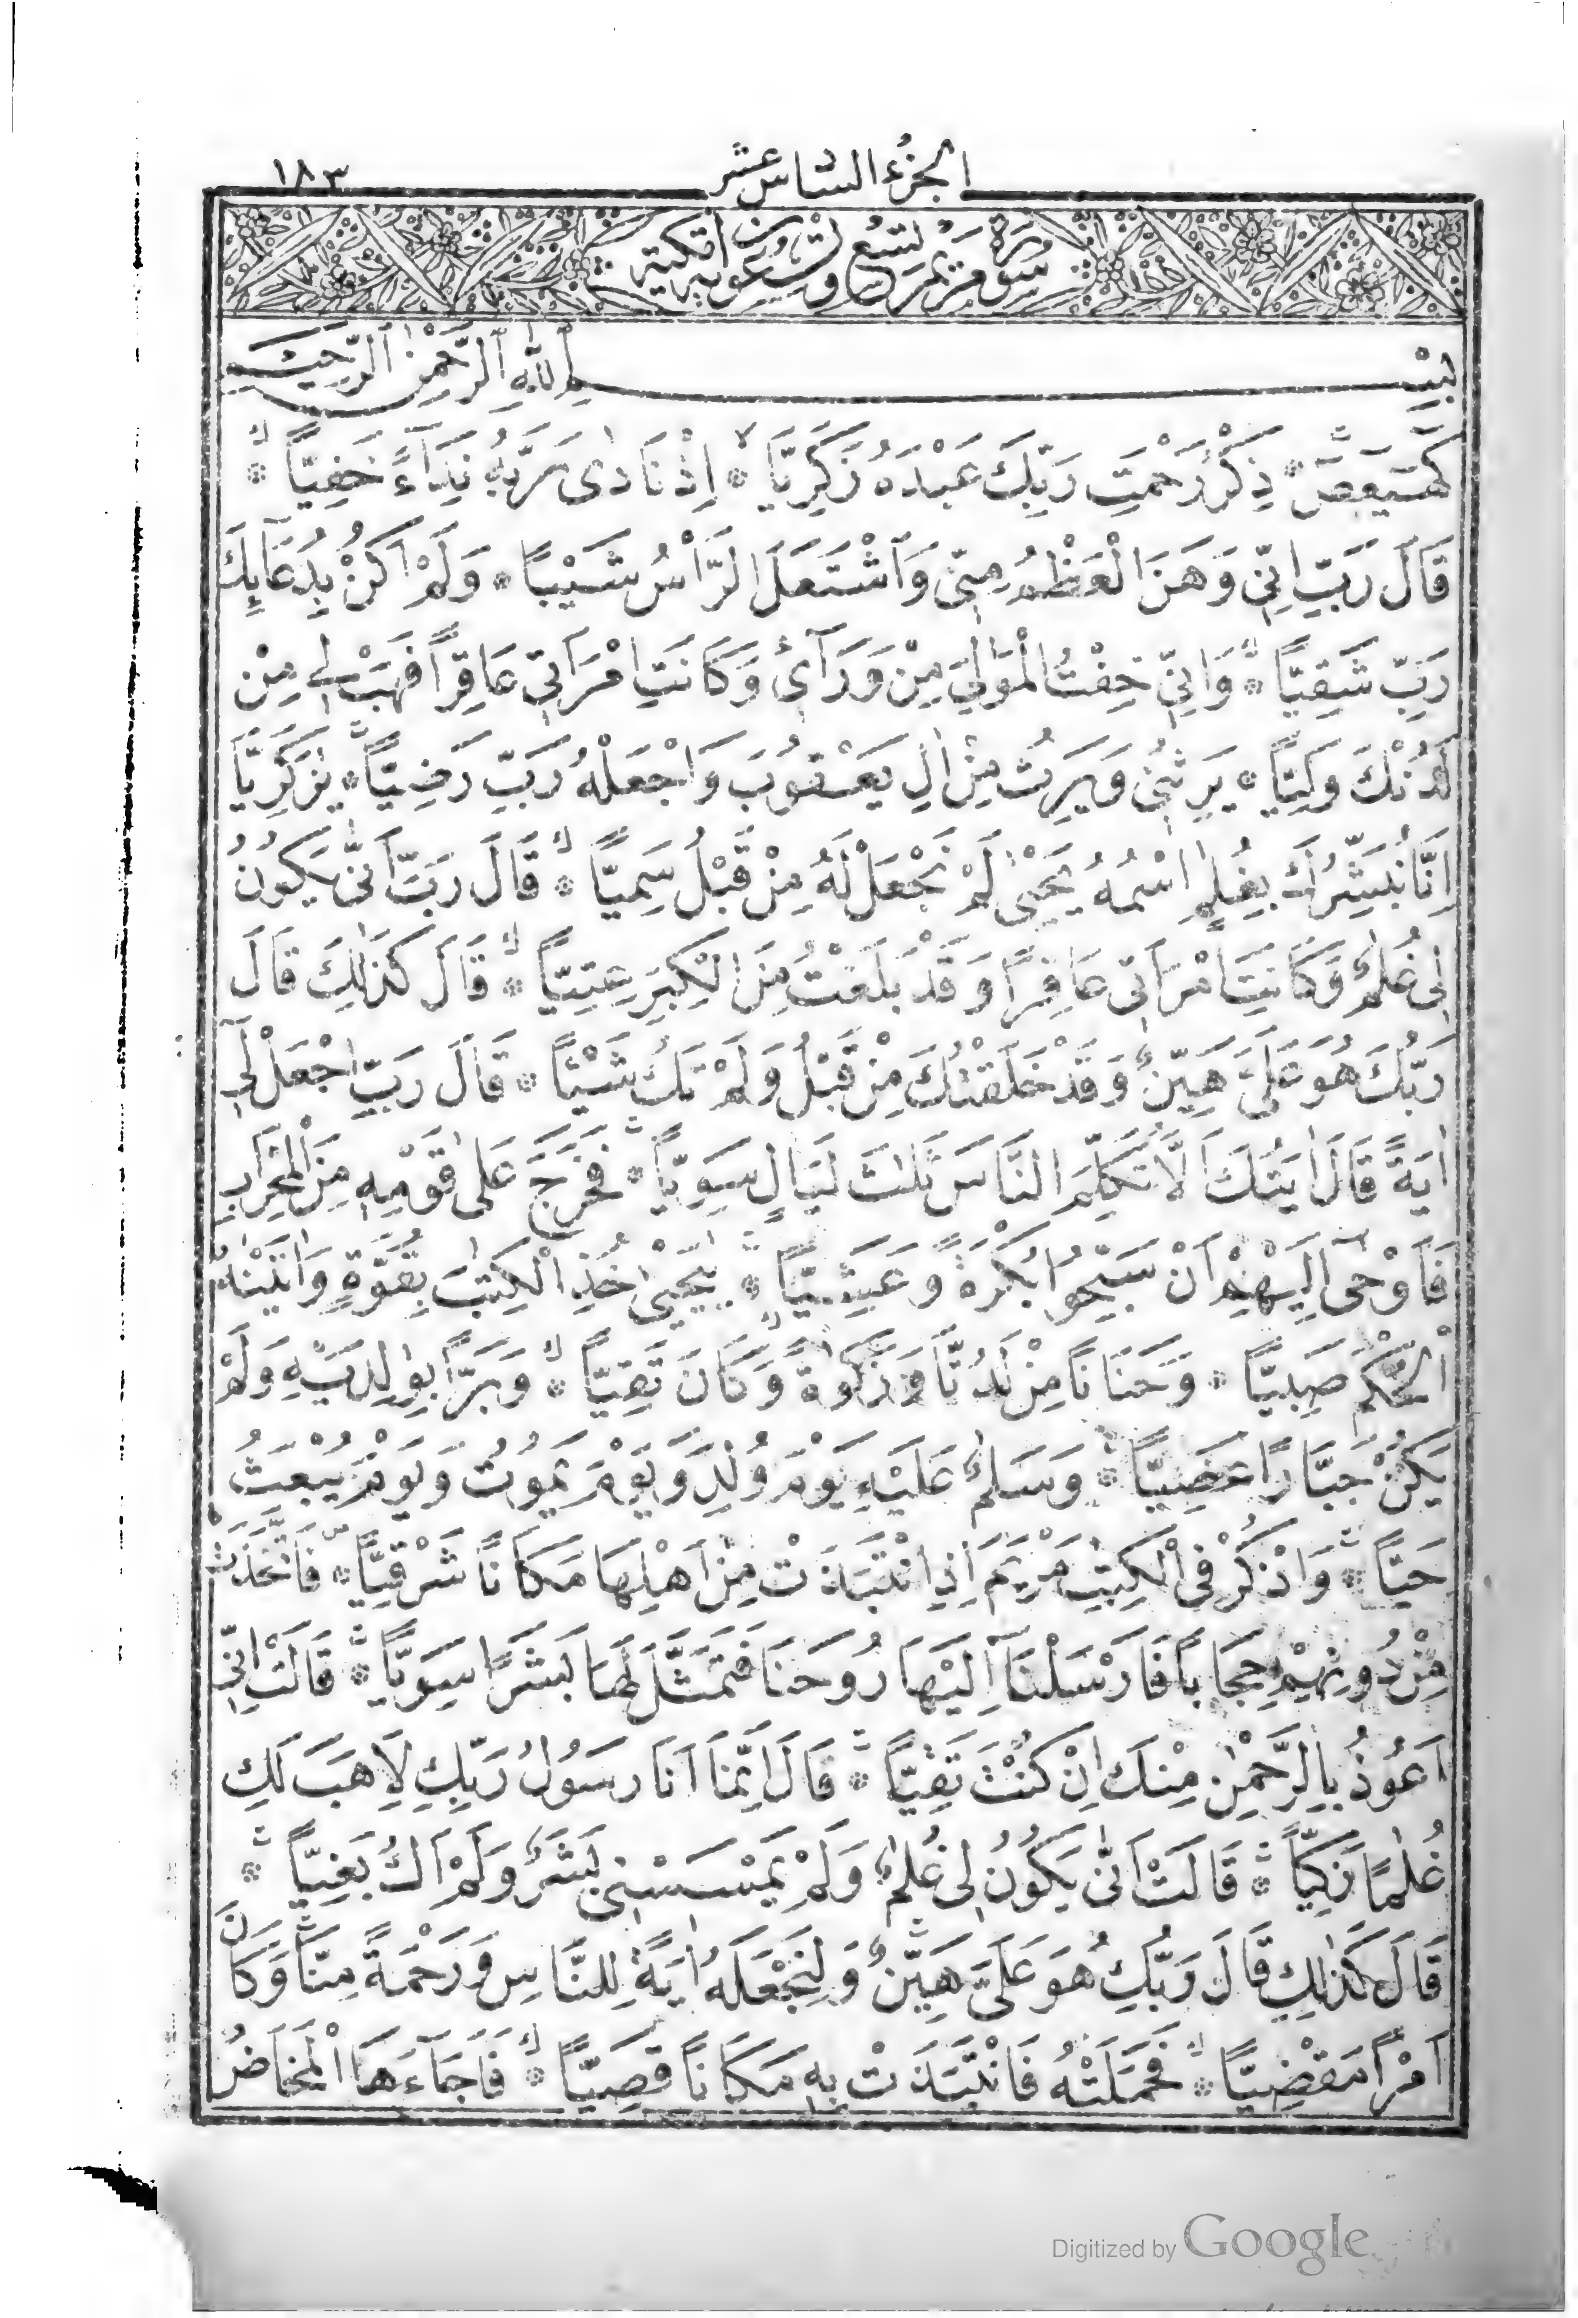 ١٨٣
الجزء السادس عشر
سورة مريم تسع وتسعون آية مكية
بِسْمِ ٱللّٰهِ ٱلرَّحْمٰنِ ٱلرَّحِيمِ
كٓهٰيٰعٓصٓ ۞ ذِكْرُ رَحْمَتِ رَبِّكَ عَبْدَهُ زَكَرِيَّا ۞ اِذْ نَادٰى رَبَّهُ نِدَآءً خَفِيًّا ۞
قَالَ رَبِّ اِنِّي وَهَنَ الْعَظْمُ مِنِّي وَاشْتَعَلَ الرَّاْسُ شَيْبًا ۞ وَلَمْ اَكُنْ بِدُعَآئِكَ
رَبِّ شَقِيًّا ۞ وَاِنِّي خِفْتُ الْمَوَالِيَ مِنْ وَرَآءِى وَكَانَتِ امْرَاَتِي عَاقِرًا فَهَبْ لِي مِنْ
لَدُنْكَ وَلِيًّا ۞ يَرِثُنِي وَيَرِثُ مِنْ اٰلِ يَعْقُوبَ وَاجْعَلْهُ رَبِّ رَضِيًّا ۞ يٰزَكَرِيَّآ
اِنَّا نُبَشِّرُكَ بِغُلٰمٍ اسْمُهُ يَحْيٰى لَمْ نَجْعَلْ لَهُ مِنْ قَبْلُ سَمِيًّا ۞ قَالَ رَبِّ اَنّٰى يَكُونُ
لِى غُلٰمٌ وَكَانَتِ امْرَاَتِى عَاقِرًا وَقَدْ بَلَغْتُ مِنَ الْكِبَرِ عِتِيًّا ۞ قَالَ كَذٰلِكَ قَالَ
رَبُّكَ هُوَ عَلَيَّ هَيِّنٌ وَقَدْ خَلَقْتُكَ مِنْ قَبْلُ وَلَمْ تَكُ شَيْئًا ۞ قَالَ رَبِّ اجْعَلْ لِٓى
اٰيَةً قَالَ اٰيَتُكَ اَلَّا تُكَلِّمَ النَّاسَ ثَلٰثَ لَيَالٍ سَوِيًّا ۞ فَخَرَجَ عَلٰى قَوْمِهِ مِنَ الْمِحْرَابِ
فَاَوْحٰٓى اِلَيْهِمْ اَنْ سَبِّحُوا بُكْرَةً وَعَشِيًّا ۞ يٰيَحْيٰى خُذِ الْكِتٰبَ بِقُوَّةٍ وَاٰتَيْنٰهُ
الْحُكْمَ صَبِيًّا ۞ وَحَنَانًا مِنْ لَدُنَّا وَزَكٰوةً وَكَانَ تَقِيًّا ۞ وَبَرًّا بِوٰلِدَيْهِ وَلَمْ
يَكُنْ جَبَّارًا عَصِيًّا ۞ وَسَلٰمٌ عَلَيْهِ يَوْمَ وُلِدَ وَيَوْمَ يَمُوتُ وَيَوْمَ يُبْعَثُ
حَيًّا ۞ وَاذْكُرْ فِى الْكِتٰبِ مَرْيَمَ اِذِ انْتَبَذَتْ مِنْ اَهْلِهَا مَكَانًا شَرْقِيًّا ۞ فَاتَّخَذَتْ
مِنْ دُونِهِمْ حِجَابًا فَاَرْسَلْنَآ اِلَيْهَا رُوحَنَا فَتَمَثَّلَ لَهَا بَشَرًا سَوِيًّا ۞ قَالَتْ اِنِّٓى
اَعُوذُ بِالرَّحْمٰنِ مِنْكَ اِنْ كُنْتَ تَقِيًّا ۞ قَالَ اِنَّمَآ اَنَا رَسُولُ رَبِّكِ لِاَهَبَ لَكِ
غُلٰمًا زَكِيًّا ۞ قَالَتْ اَنّٰى يَكُونُ لِى غُلٰمٌ وَلَمْ يَمْسَسْنِى بَشَرٌ وَلَمْ اَكُ بَغِيًّا ۞
قَالَ كَذٰلِكِ قَالَ رَبُّكِ هُوَ عَلَيَّ هَيِّنٌ وَلِنَجْعَلَهُ اٰيَةً لِلنَّاسِ وَرَحْمَةً مِنَّا وَكَانَ
اَمْرًا مَقْضِيًّا ۞ فَحَمَلَتْهُ فَانْتَبَذَتْ بِهِ مَكَانًا قَصِيًّا ۞ فَاَجَآءَهَا الْمَخَاضُ
Digitized by Google